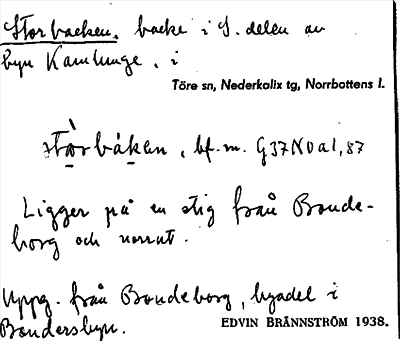 Storbacken, backe i S. delen av
byn Kamlunge, i
Töre sn, Nederkalix tg, Norrbottens l.
stòrbák̲an, bf. m. G37NVa1,87
Ligger på en stig från Bonde-
borg och norrut.
Uppg. från Bondeborg, byadel i
Bondersbyn.
EDVIN BRÄNNSTRÖM 1938.